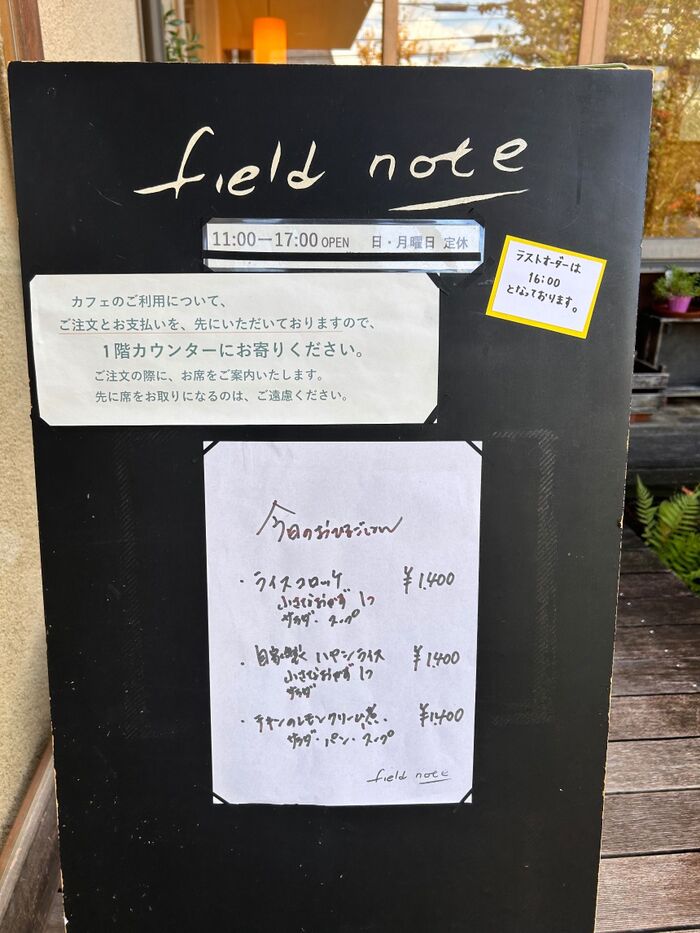 field note
11:00ー17:00 OPEN 日・月曜日 定休
ラストオーダーは
16:00
となっております。
カフェのご利用について、
ご注文とお支払いを、先にいただいておりますので、
1階カウンターにお寄りください。
ご注文の際に、お席をご案内いたします。
先に席をお取りになるのは、ご遠慮ください。
今日のおひるごはん
・ライスコロッケ ¥1,400
小さなおかず 1つ
サラダ・スープ
・自家製 ハヤシライス ¥1,400
小さなおかず 1つ
サラダ
・チキンのレモンクリーム煮・ ¥1,400
サラダ・パン・スープ
field note